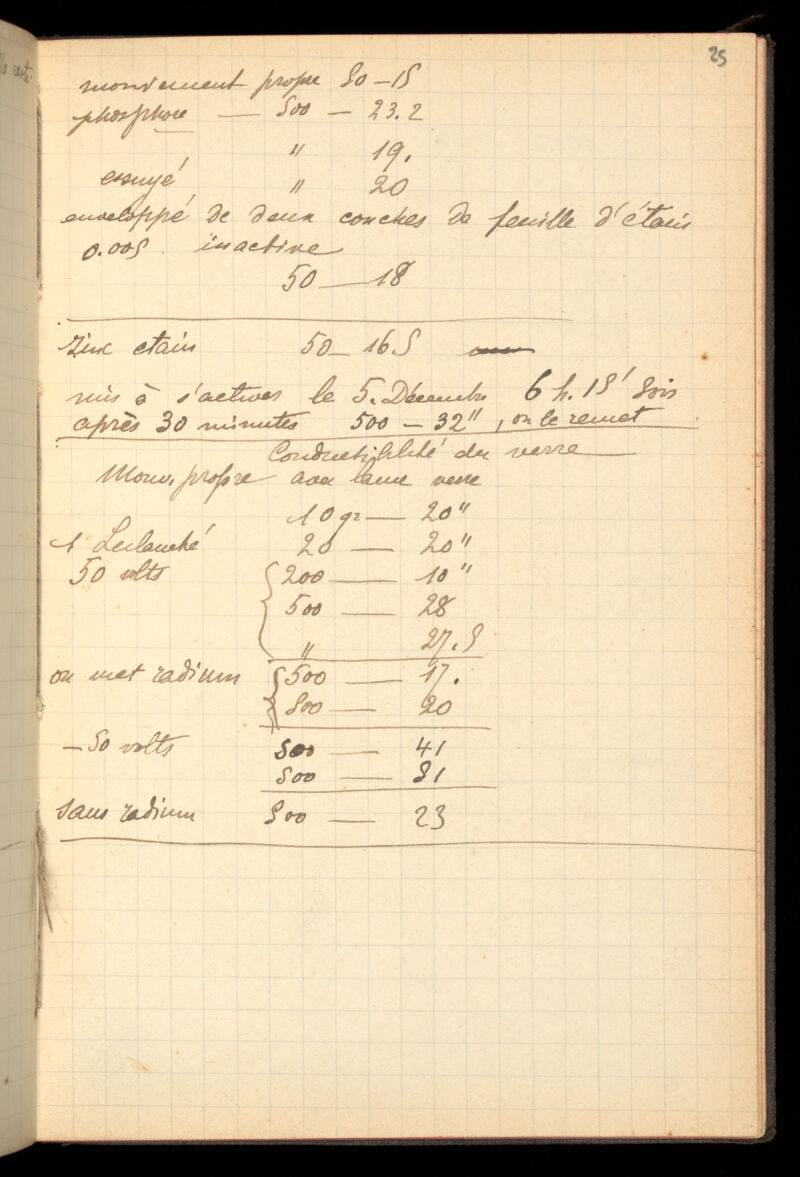 25
mouvement propre 50 – 15
phosphore — 500 — 23.2
" 19.
essuyé " 20
enveloppé de deux couches de feuille d'étain
0.005 inactive
50 — 18
zinc etain 50 – 16.5
mis à s'activer le 5. Décembre 6 h. 15' soir
après 30 minutes 500 – 32", on le remet
Conductibilité du verre
Mouv. propre avec lame verre
10 gr — 20"
1 Leclanché 20 — 20"
50 volts 200 — 10"
500 — 28
" 27.5
on met radium 500 — 17.
500 — 20
– 50 volts 500 — 41
500 — 51
sans radium 500 — 23